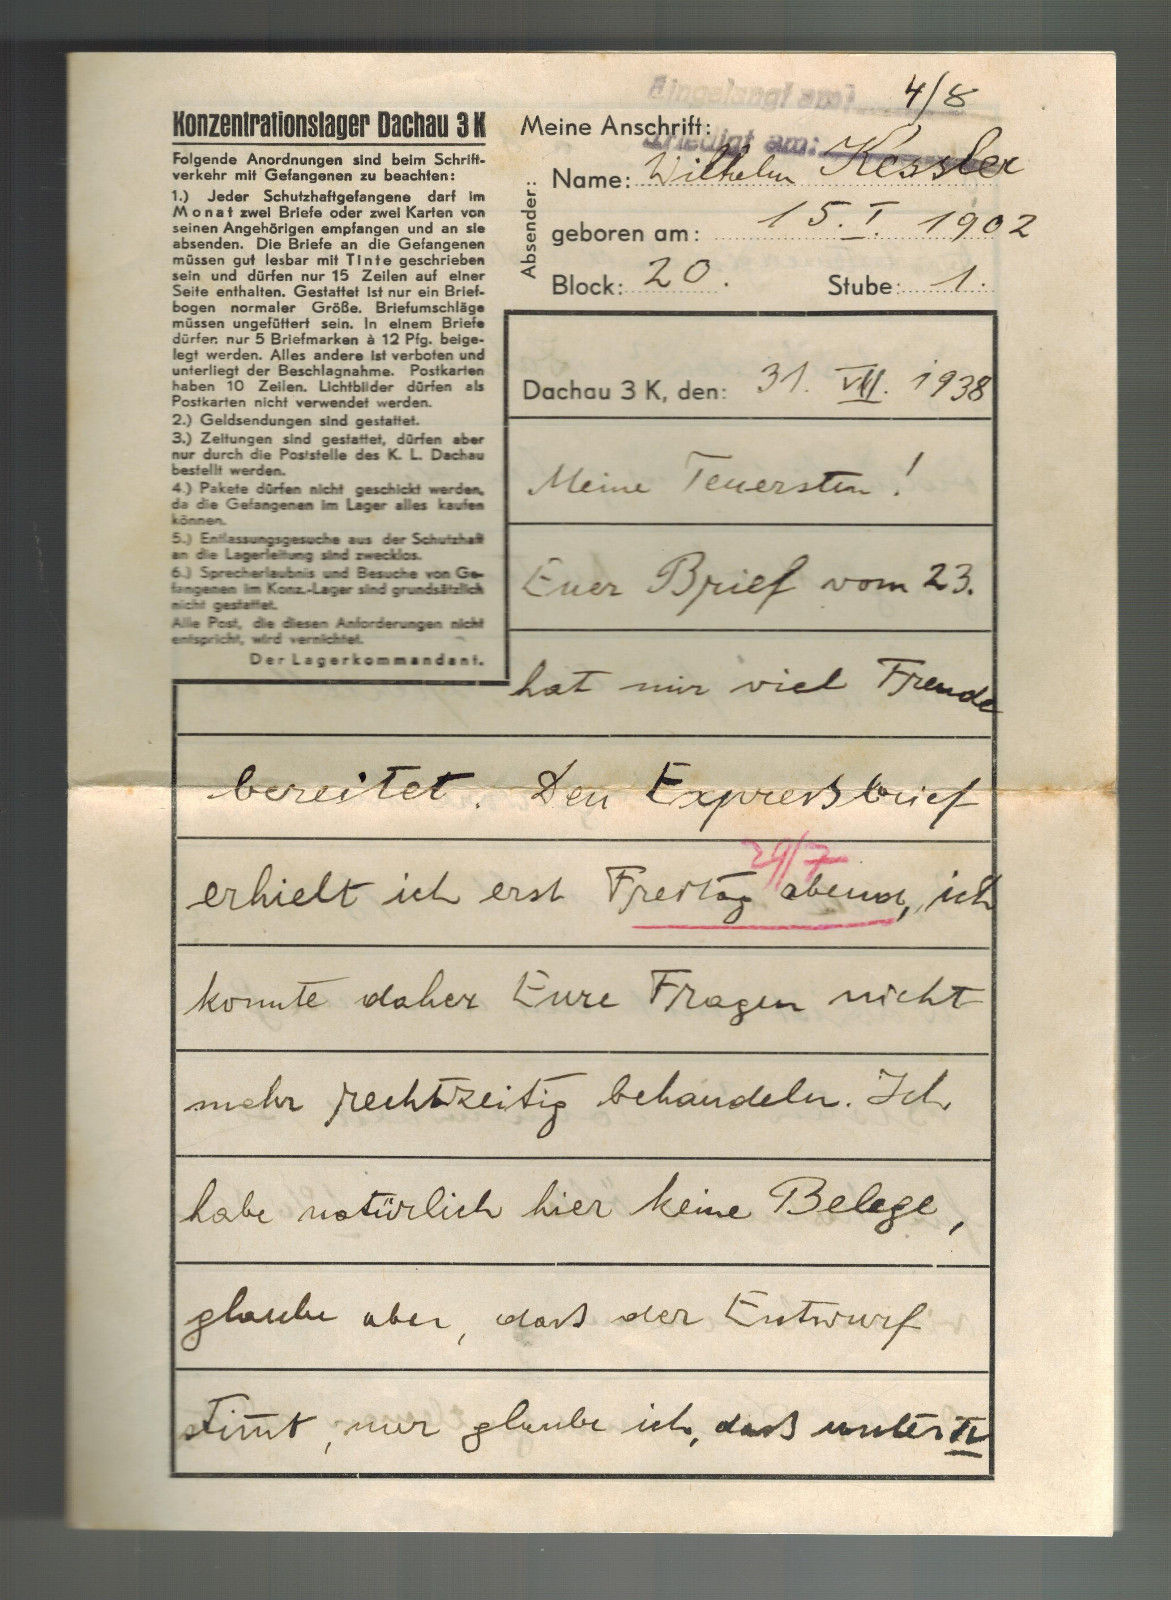 Eingelangt am: 4/8
Erledigt am:
Konzentrationslager Dachau 3 K
Folgende Anordnungen sind beim Schrift-
verkehr mit Gefangenen zu beachten:
1.) Jeder Schutzhaftgefangene darf im
Monat zwei Briefe oder zwei Karten von
seinen Angehörigen empfangen und an sie
absenden. Die Briefe an die Gefangenen
müssen gut lesbar mit Tinte geschrieben
sein und dürfen nur 15 Zeilen auf einer
Seite enthalten. Gestattet ist nur ein Brief-
bogen normaler Größe. Briefumschläge
müssen ungefüttert sein. In einem Briefe
dürfen nur 5 Briefmarken à 12 Pfg. beige-
legt werden. Alles andere ist verboten und
unterliegt der Beschlagnahme. Postkarten
haben 10 Zeilen. Lichtbilder dürfen als
Postkarten nicht verwendet werden.
2.) Geldsendungen sind gestattet.
3.) Zeitungen sind gestattet, dürfen aber
nur durch die Poststelle des K. L. Dachau
bestellt werden.
4.) Pakete dürfen nicht geschickt werden,
da die Gefangenen im Lager alles kaufen
können.
5.) Entlassungsgesuche aus der Schutzhaft
an die Lagerleitung sind zwecklos.
6.) Sprecherlaubnis und Besuche von Ge-
fangenen im Konz.-Lager sind grundsätzlich
nicht gestattet.
Alle Post, die diesen Anforderungen nicht
entspricht, wird vernichtet.
Der Lagerkommandant.
Meine Anschrift:
Absender:
Name: Wilhelm Kessler
geboren am: 15. I. 1902
Block: 20. Stube: 1.
Dachau 3 K, den: 31. VII. 1938
Meine Teuersten!
Euer Brief vom 23.
hat mir viel Freude
bereitet. Den Expreßbrief
29/7
erhielt ich erst Freitag abend, ich
konnte daher Eure Fragen nicht
mehr rechtzeitig behandeln. Ich
habe natürlich hier keine Belege,
glaube aber, daß der Entwurf
stim̅t, nur glaube ich, daß unter II